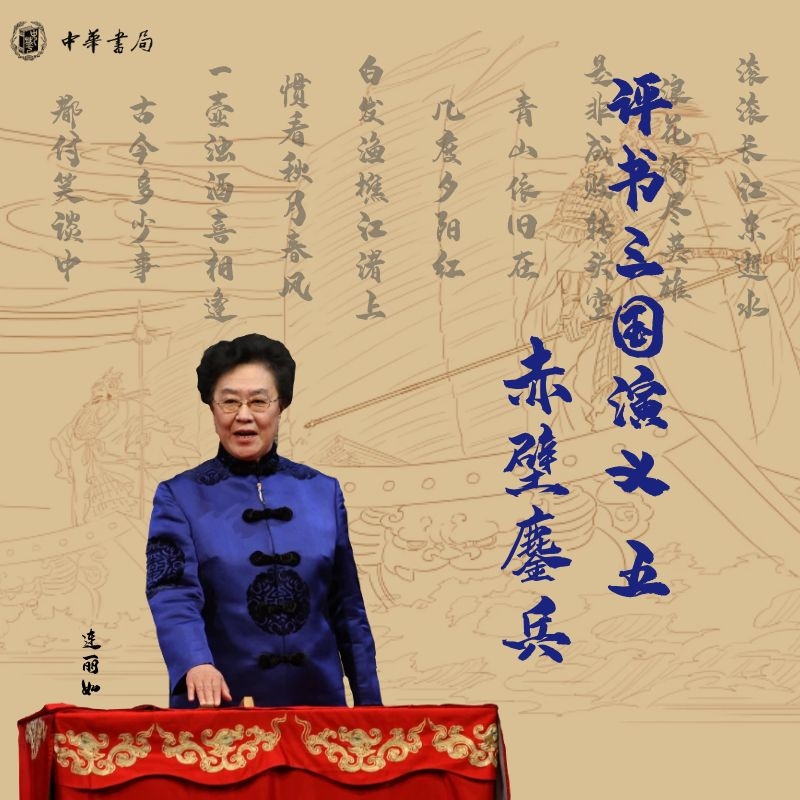 中華書局
评书三国演义 五
赤壁鏖兵
滚滚长江东逝水
浪花淘尽英雄
是非成败转头空
青山依旧在
几度夕阳红
白发渔樵江渚上
惯看秋月春风
一壶浊酒喜相逢
古今多少事
都付笑谈中
连丽如